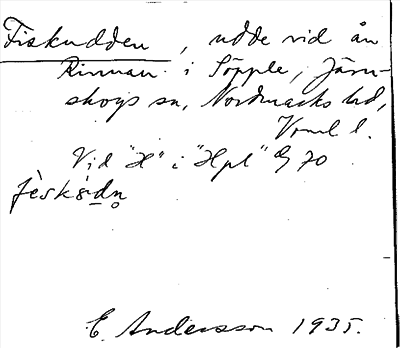 Fiskudden, udde vid ån
Rinnan i Söpple, Järn-
skogs sn, Nordmarks hd,
Vrml l.
Vid "H" i "Hpl" Eg 70
E. Andersson 1935.